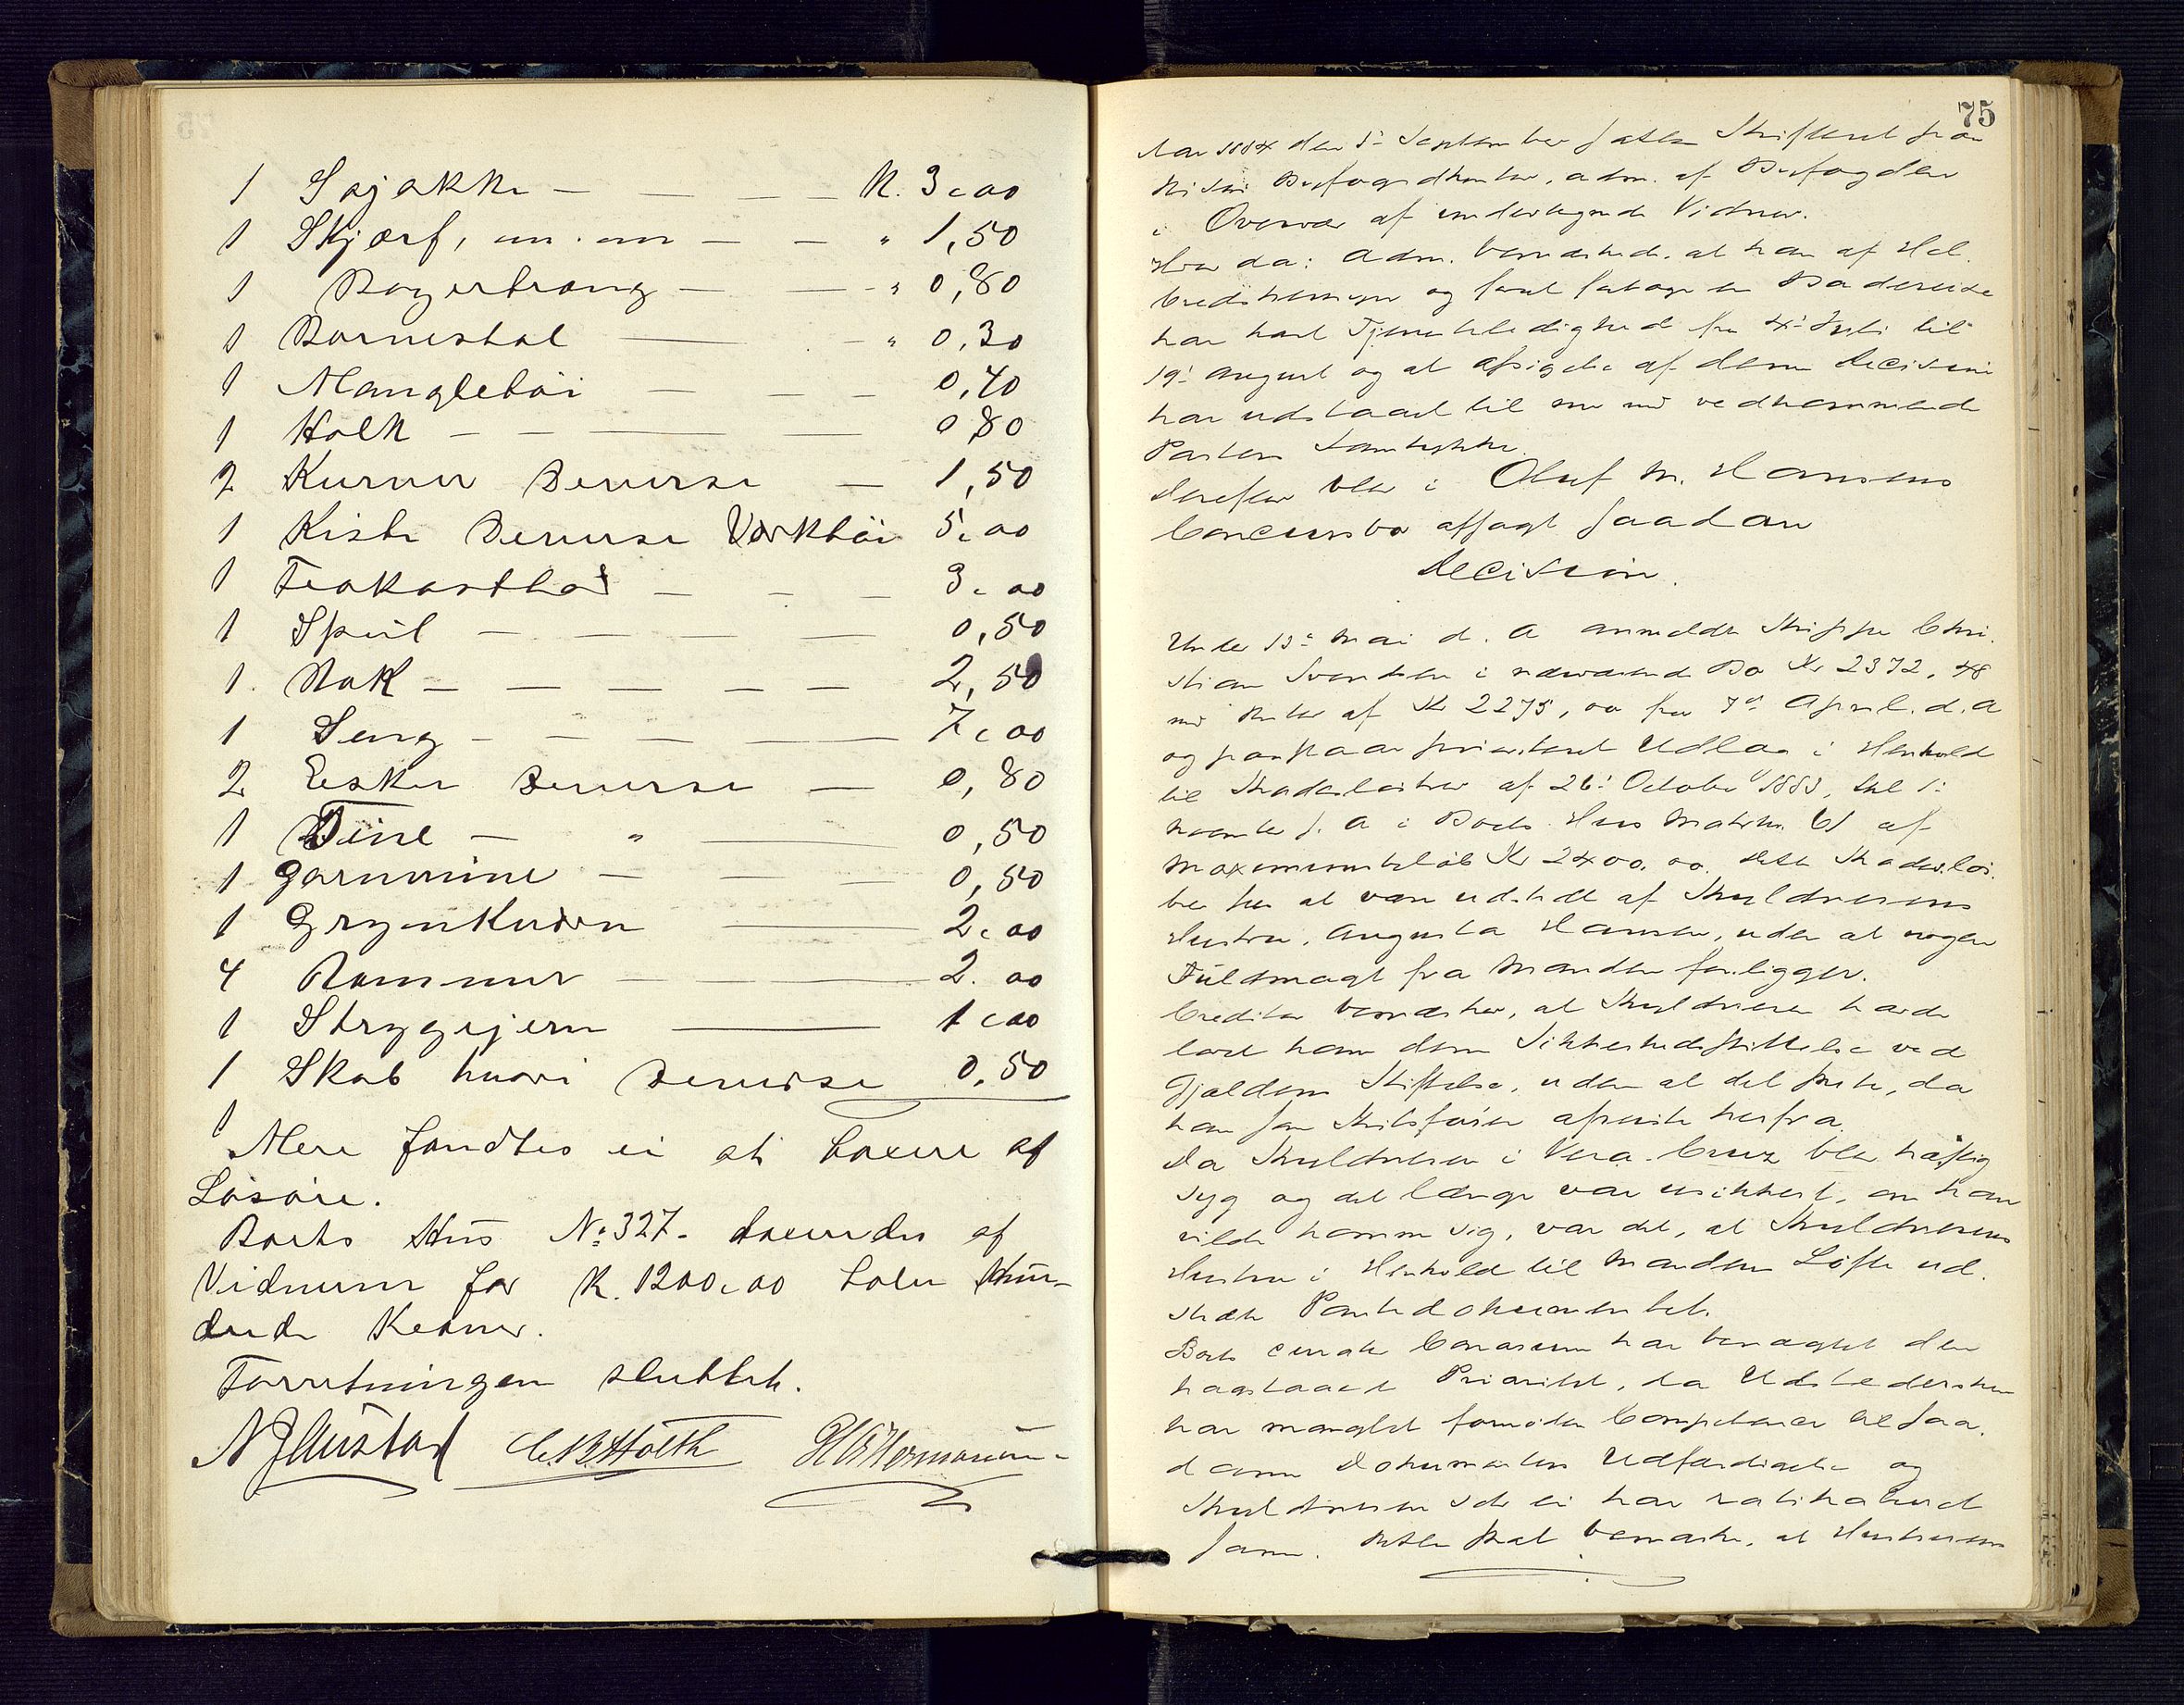 1 Sojakke — — — — K. 3,00
1 Skjærf, m. m — — " 1,50
1 Bagertraug — — - " 0,80
1 Barnestol — - " 0,30
1 Mangletøi — — — 0,40
1 Holk — — — — 0,80
2 Kurver Deverse — 1,50
1 Kiste Deverse Værktøi 5,00
1 3,00
1 Speil — — — — 0,50
1. Bok — — — — — 2,50
1 Seng — — — — 7,00
2 Esker Deverse — 0,80
1 Tine — " — 0,50
1 Garnvine — — — 0,50
1 Grynkværn — 2,00
4 Rammer — — 2.00
1 Strygejern — 1,00
1 Skab hvori Deverse 0,50
Mere fandtes ei at taxere af
Løsøre.
Boets Hus No: 327. taxeredes af
Vidnerne for K. 1200,00 tolv Hun-
drede Kroner.
Forretningen sluttet.
N J Mustad C. B. Holth H Hermansen
75
Aar 1884 den 5te September sattes Skifteret paa
Byfogdkontor, adm. af Byfogden
i Overvær af undertegnede Vidner.
Hvor da: Adm. bemærkede, at han af Hel-
bredshensyn og for at foretage en Badereise
har havt Tjenestledighed fra 4de Juli til
19de August og at Afsigelse af denne Decision
har udstaaet til nu med vedkommende
Parters Samtykke.
Derefter blev i Oluf M. Hansens
Concursbo afsagt saadan
Decision.
Under 13de Mai d. A anmeldte Skipper Chri-
stian Svendsen i nærværende Bo Kr 2372,48
med Renter af Kr 2275,00 fra 7de April d. A
og paastaar prioriteret Udlæg i Henhold
til Skadesløsbrev af 26de October 1883, thl 1ste
November s. A i Boets Hus Matrikul 61 af
Maximumsbeløb Kr 2400,00. Dette Skadesløs-
brev sees at være udstedt af Skyldnerens
Hustru, Augusta Hansen, uden at nogen
Fuldmagt fra Manden foreligger.
Creditor bemærker, at Skyldneren havde
lovet ham denne Sikkerhedsstillelse ved
Gjældens Stiftelse, uden at det skete, da
han som Skibsfører afreiste herfra.
Da Skyldneren i Vera-Cruz blev hæftig
syg og det længe var usikkert, om han
vilde komme sig, var det, at Skyldnerens
Hustru i Henhold til Mandens Løfte ud-
stedte Pantedokumentet.
Boets Curator har benægtet den
paastaaede Prioritet, da Udstedersken
har manglet fornøden Competance til saa-
danne Dokumenters Udfærdigelse og
Skyldneren selv ei har ratihaberet
samme. Retten skal bemærke, at Hustruens